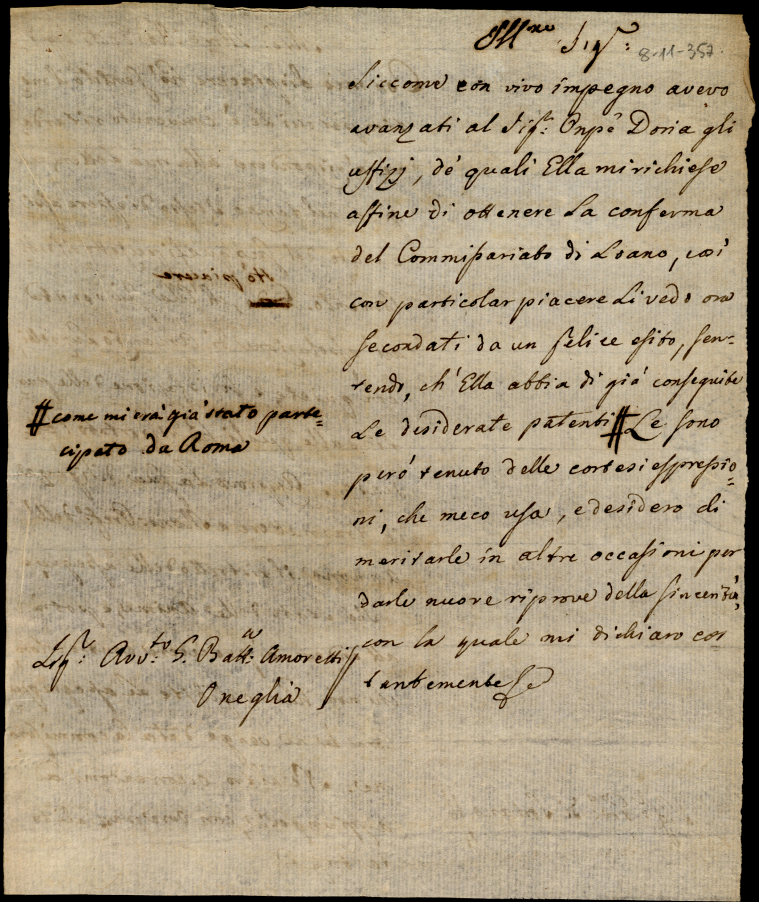 Ill.mo Sig.r:
8-11-357.
Siccome con vivo impegno avevo
avanzati al Sig.r: Onpẽ Doria gli
uffizj, de' quali Ella mi richiese
affine di ottenere La conferma
del Commissariato di Loano, così
con particolar piacere Li vedo ora
secondati da un felice esito, sen-
tendo, ch'Ella abbia di già conseguite
Le desiderate patenti # Le sono
però tenuto delle cortesi espressio=
ni, che meco usa, e desidero di
meritarle in altre occasioni per
darle nuove riprove della sincerità,
con la quale mi dichiaro cos
tantemente
# come mi era già stato parte=
cipato da Roma
Sig.r: Avv.to G. Batt.a Amoretti
Oneglia